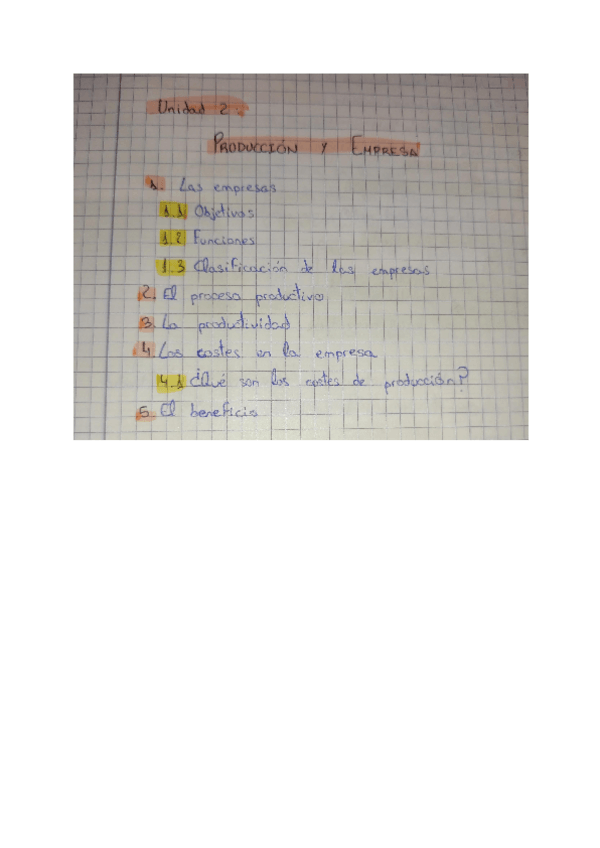 Unidad 2:
PRODUCCIÓN Y EMPRESA
1. Las empresas
1.1 Objetivos
1.2 Funciones
1.3 Clasificación de las empresas
2. El proceso productivo
3. La productividad
4. Los costes en la empresa
4.1 ¿Qué son los costes de producción?
5. El beneficio